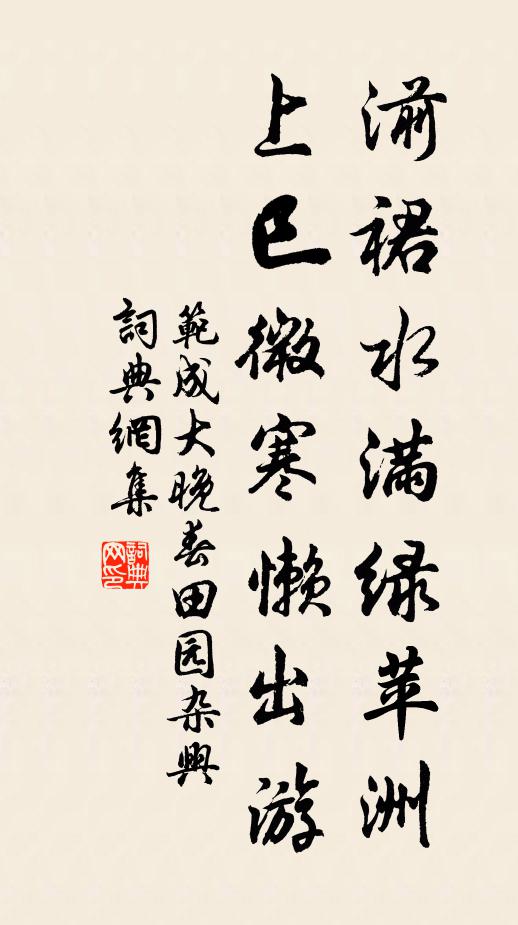 湔裙水满绿苹洲
上巳微寒懒出游
範成大晚春田园杂興
詞典網集
詞典网印